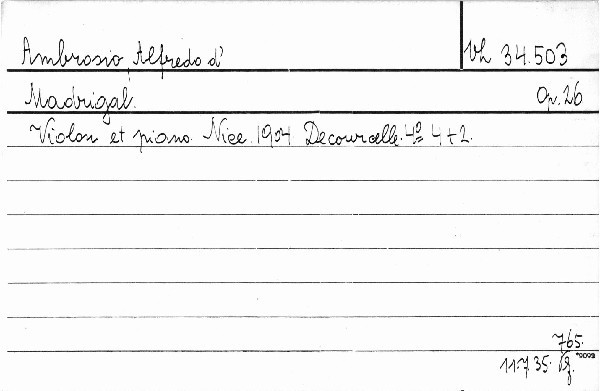 Ambrosio, Alfredo d' Vh 34.503
Madrigal. Op. 26
Violon et piano. Nice. 1904 Decourcelle. 4º 4+2.
765.
11.7.35.